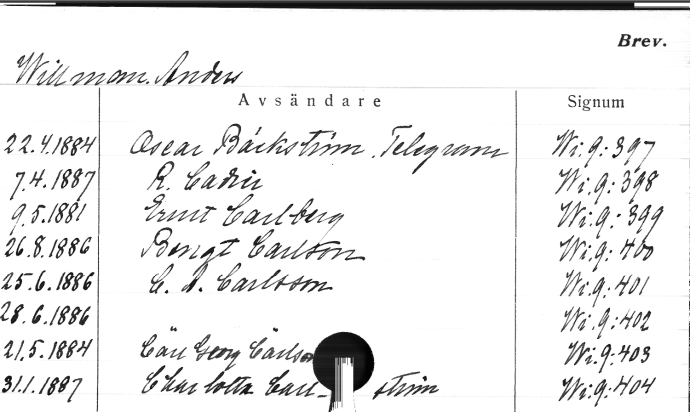 Brev.
Willman. Anders
Avsändare Signum
22.4.1884 Oscar Bäckström. Telegram Wi.9:397
7.4.1887 R. Cadier Wi.9:398
9.5.1881 Ernst Carlberg Wi.9:399
26.8.1886 Bengt Carlson Wi.9:400
25.6.1886 C. A. Carlsson Wi.9:401
28.6.1886 Wi.9:402
21.5.1884 Carl Georg Carlson Wi.9:403
31.1.1887 Charlotta Carl- ström Wi.9:404